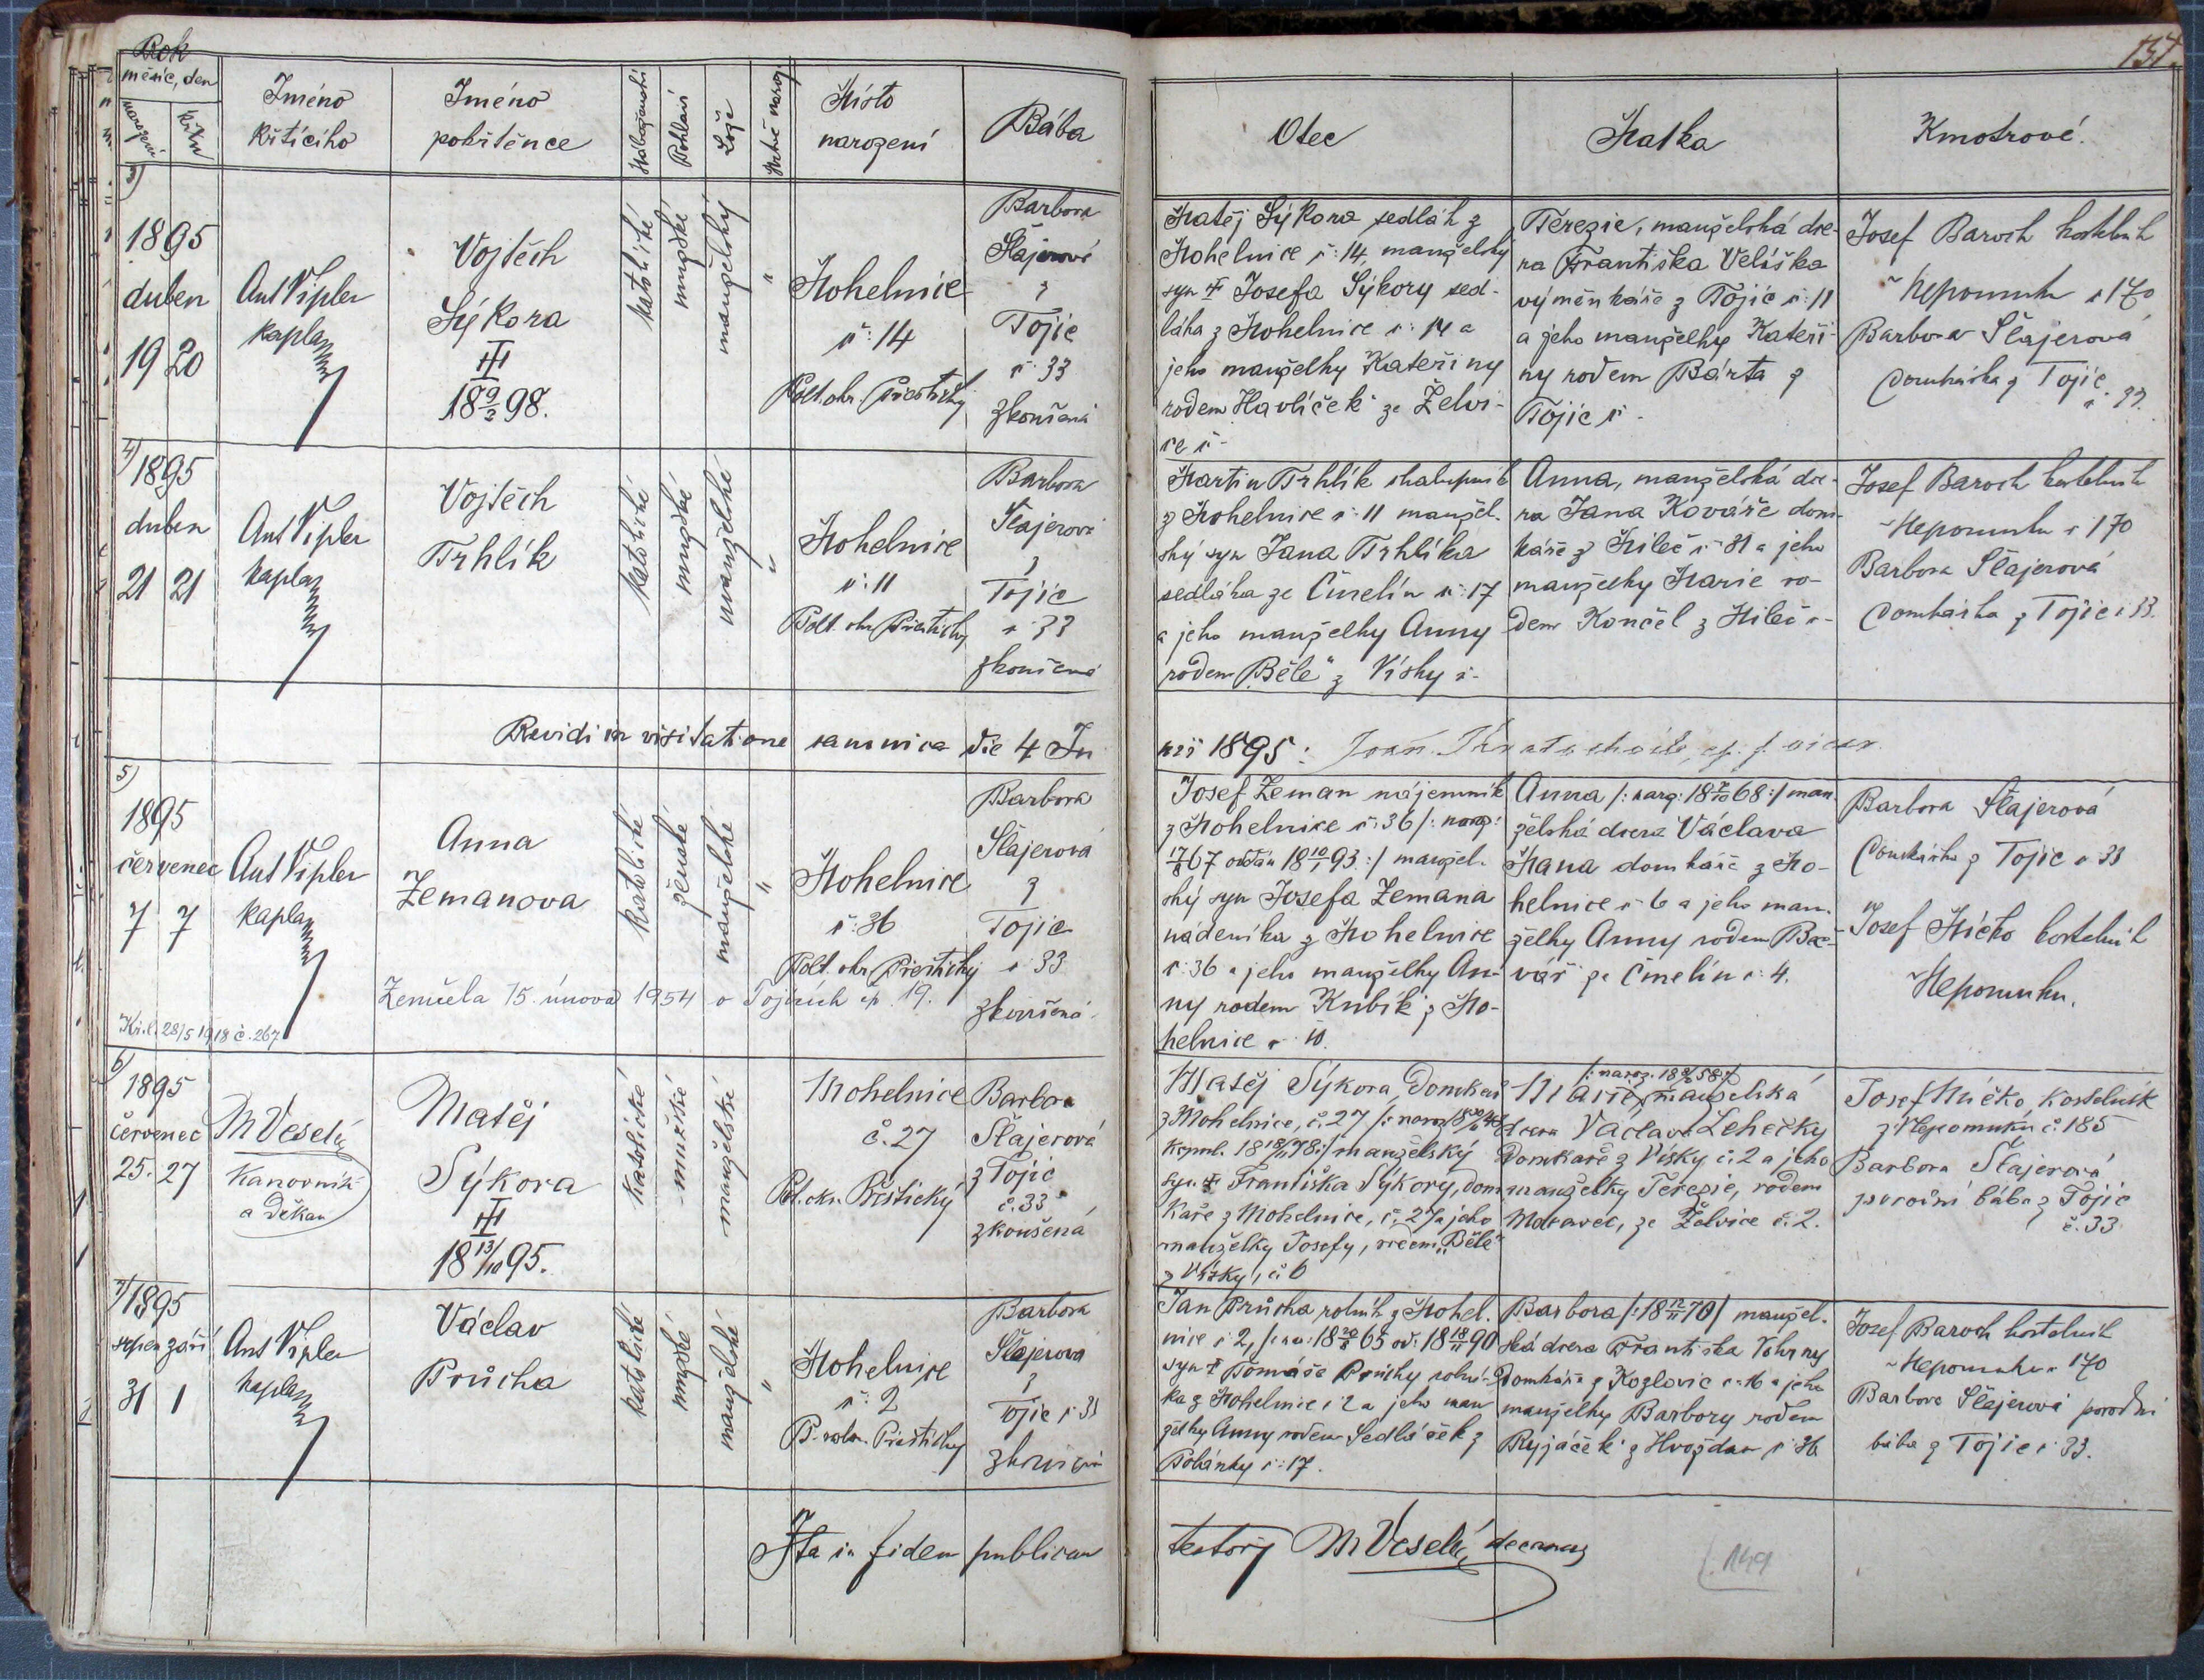 137.
Rok
měsíc, den
narození
křtu
Jméno
křtícího
Jméno
pokřtěnce
Náboženství
Pohlaví
Lože
Místo
narození
Bába
Otec
Matka
Kmotrové.
3)
1895
duben
19 20
Ant Vipler
kaplan
Vojtěch
Sýkora
18 9/2 98.
katolické
mužské
manželský
"
Mohelnice
č: 14
Polt. okr. Přeštický
Barbora
Šlajerová
z
Tojic
č: 33
zkoušená
Matěj Sýkora sedlák z
Mohelnice č: 14, manželský
syn † Josefa Sýkory sed-
láka z Mohelnice č: 14 a
jeho manželky Kateřiny
rodem Havlíček ze Želvi-
ce č -
Terezie, manželská dce-
ra Františka Velíška
výměnkáře z Tojic č: 11
a jeho manželky Kateři-
ny rodem Bárta z
Tojic č -
Josef Baroch kostelník
z Nepomuku č 170
Barbora Šlajerová
domkářka z Tojic
č 33.
4)
1895
duben
21 21
Ant Vipler
kaplan
Vojtěch
Trhlík
katolické
mužské
manželské
"
Mohelnice
č: 11
Polt. okr Přeštický
Barbora
Šlajerová
z
Tojic
č 33
zkoušená
Martin Trhlík chalupník
z Mohelnice č: 11 manžel-
ský syn Jana Trhlíka
sedláka ze Čmelín č: 17
a jeho manželky Anny
rodem "Běle" z Vísky č -
Anna, manželská dce-
ra Jana Kováře dom-
káře z Mileč č 31 a jeho
manželky Marie ro-
dem Končel z Mileč č -
Josef Baroch kostelník
z Nepomuku č 170
Barbora Šlajerová
domkářka z Tojic č 33.
Revidi in visitatione canonica die 4 Ju
nii 1895:
5)
1895
červenec
7 7
Ant Vipler
kaplan
Anna
Zemanova
katolické
ženské
manželské
"
Mohelnice
č: 36
Polt. okr Přeštický
Barbora
Šlajerová
z
Tojic
č 33
zkoušená
Zemřela 15. února 1954 v Tojicích čp. 19.
Kř. l. 28/5 1918 č. 267.
Josef Zeman nájemník
z Mohelnice č: 36 /: naroz:
67 oddán 18 10/1 93 :/ manžel-
ský syn Josefa Zemana
nádeníka z Mohelnice
č: 36 a jeho manželky An-
ny rodem Kubík z Mo-
helnice č 10.
Anna /: naroz: 18 7/10 68 :/ man-
želská dcera Václava
Hana domkáře z Mo-
helnice č 6 a jeho man-
želky Anny rodem Bač-
vář ze Čmelín č 4.
Barbora Šlajerová
domkářka z Tojic č 33
Josef Míčko kostelník
z Nepomuku.
6)
1895
červenec
25. 27
M Veselý
kanovník
a děkan
Matěj
Sýkora
18 13/10 95.
katolické
mužské
manželské
Mohelnice
č. 27
Pol. okr. Přeštický
Barbora
Šlajerová
z Tojic
č. 33
zkoušená
Matěj Sýkora, domkař
z Mohelnice, č. 27
manželský
syn † Františka Sýkory, dom-
kaře z Mohelnice, č. 27 a jeho
manželky Josefy, rodem "Běle"
z Vísky, č 6
Marie, manželská
dcera Václava Lehečky
domkaře z Vísky č. 2 a jeho
manželky Terezie, rodem
Moravec, ze Želvice č. 2.
Josef Míčko, kostelník
z Nepomuku č. 185
Barbora Šlajerová
porodní bába z Tojic
č. 33
7)
1895
srpen září
31 1
Ant Vipler
kaplan
Václav
Průcha
katolické
mužské
manželské
"
Mohelnice
č: 2
Přeštický
Barbora
Šlajerova
z
Tojic č 33
zkoušená
Jan Průcha rolník z Mohel-
nice č 2, /: nar: 18 20/8 65 od: 18 18/11 90
syn † Tomáše Průchy rolní-
ka z Mohelnice č 2 a jeho man
želky Anny rodem Sedláček z
Polánky č: 17.
Barbora /: 18 12/11 70 / manžel-
ská dcera Františka
domkáře z Kozlovic č 16 a jeho
manželky Barbory rodem
Ryjáček z Hvožďan č 36
Josef Baroch kostelník
z Nepomuku č 170
Barbora Šlajerová porodní
bába z Tojic č 33.
Ita in fidem publicam
testor M Veselý, decanus
149